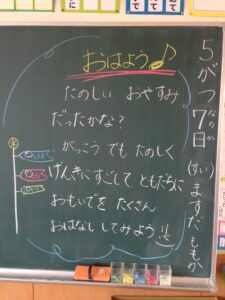 5がつ7日(すい)ますだ ももか
なのか
おはよう♪
たのしい おやすみ
だったかな?
がっこう でも たのしく
げんきに すごして ともだちに
おもいでを たくさん
おはなし してみよう!!